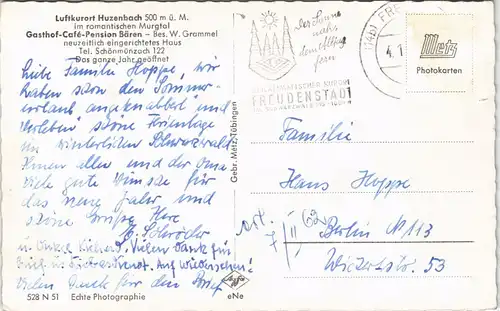 Luftkurort Huzenbach 500 m ü. M.
im romantischen Murgtal
Gasthof-Café-Pension Bären – Bes. W. Grammel
neuzeitlich eingerichtetes Haus
Tel. Schönmünzach 122
Das ganze Jahr geöffnet
Liebe Familie Hoppe, wir
haben schon den Sommer-
urlaub angeknabbert und
verleben schöne Ferientage
im winterlichen Schwarzwald
Ihnen allen und der Oma
viele gute Wünsche für
das neue Jahr und
schöne Grüße Ihre
Schröder
u. Vielen Dank für
Auf Wiedersehen!
Vielen Dank für den Brief
528 N 51 Echte Photographie
Gebr. Metz, Tübingen
eNe
Agfa
Der Sonne
nah
dem Alltag
fern
HEILKLIMATISCHER KURORT
FREUDENSTADT
SCHWARZWALD
4.1
Metz
Photokarten
Familie
Hans Hoppe
7/II 62
Berlin N 113
53